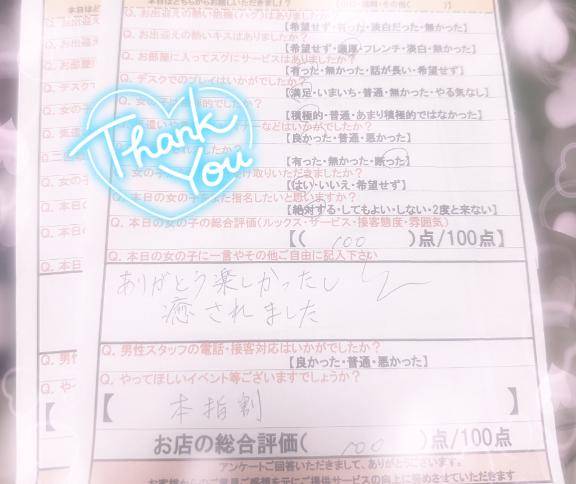 Q. お出迎えの熱いキスはありましたか？
【希望せず・有った・淡白だった・無かった】
【希望せず・濃厚・フレンチ・淡白・無かった】
Q. お部屋に入ってスグにサービスはありましたか？
【有った・無かった・話が長い・希望せず】
Q. デスクでのプレイはいかがでしたか？
【満足・いまいち・普通・無かった・やる気なし】
【積極的・普通・あまり積極的ではなかった】
などはいかがでしたか？
【良かった・普通・悪かった】
【有った・無かった・断った】
け取りいただきましたか？
【はい・いいえ・希望せず】
Thank You
Q. 本日の女の子をまた指名したいと思いますか？
【絶対する・してもよい・しない・2度と来ない】
Q. 本日の女の子の総合評価(ルックス・サービス・接客態度・雰囲気)
【( 100 )点/100点】
Q. 本日の女の子に一言やその他ご自由に記入下さい
ありがとう楽しかったし
癒されました
Q. 男性スタッフの電話・接客対応はいかがでしたか？
【良かった・普通・悪かった】
Q. やってほしいイベント等ございますでしょうか？
【 本指割 】
お店の総合評価( 100 )点/100点
アンケートご回答いただきまして、ありがとうございます。